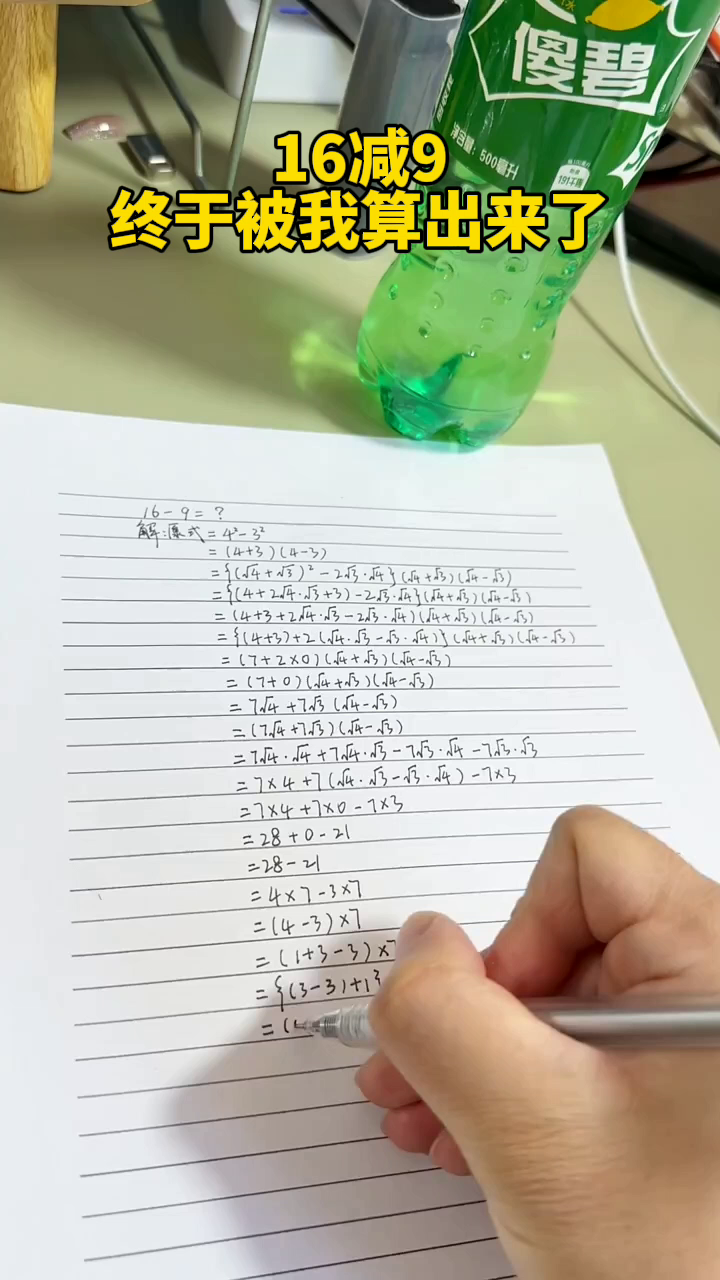 傻碧
净含量：500毫升
16减9
终于被我算出来了
16-9=?
解:原式=4²-3²
=(4+3)(4-3)
={(√4+√3)²-2√3·√4}(√4+√3)(√4-√3)
={(4+2√4·√3+3)-2√3·√4}(√4+√3)(√4-√3)
=(4+3+2√4·√3-2√3·√4)(√4+√3)(√4-√3)
={(4+3)+2(√4·√3-√3·√4)}(√4+√3)(√4-√3)
=(7+2×0)(√4+√3)(√4-√3)
=(7+0)(√4+√3)(√4-√3)
=7√4+7√3(√4-√3)
=(7√4+7√3)(√4-√3)
=7√4·√4+7√4·√3-7√3·√4-7√3·√3
=7×4+7(√4·√3-√3·√4)-7×3
=7×4+7×0-7×3
=28+0-21
=28-21
=4×7-3×7
=(4-3)×7
=(1+3-3)×7
={(3-3)+1}
=(